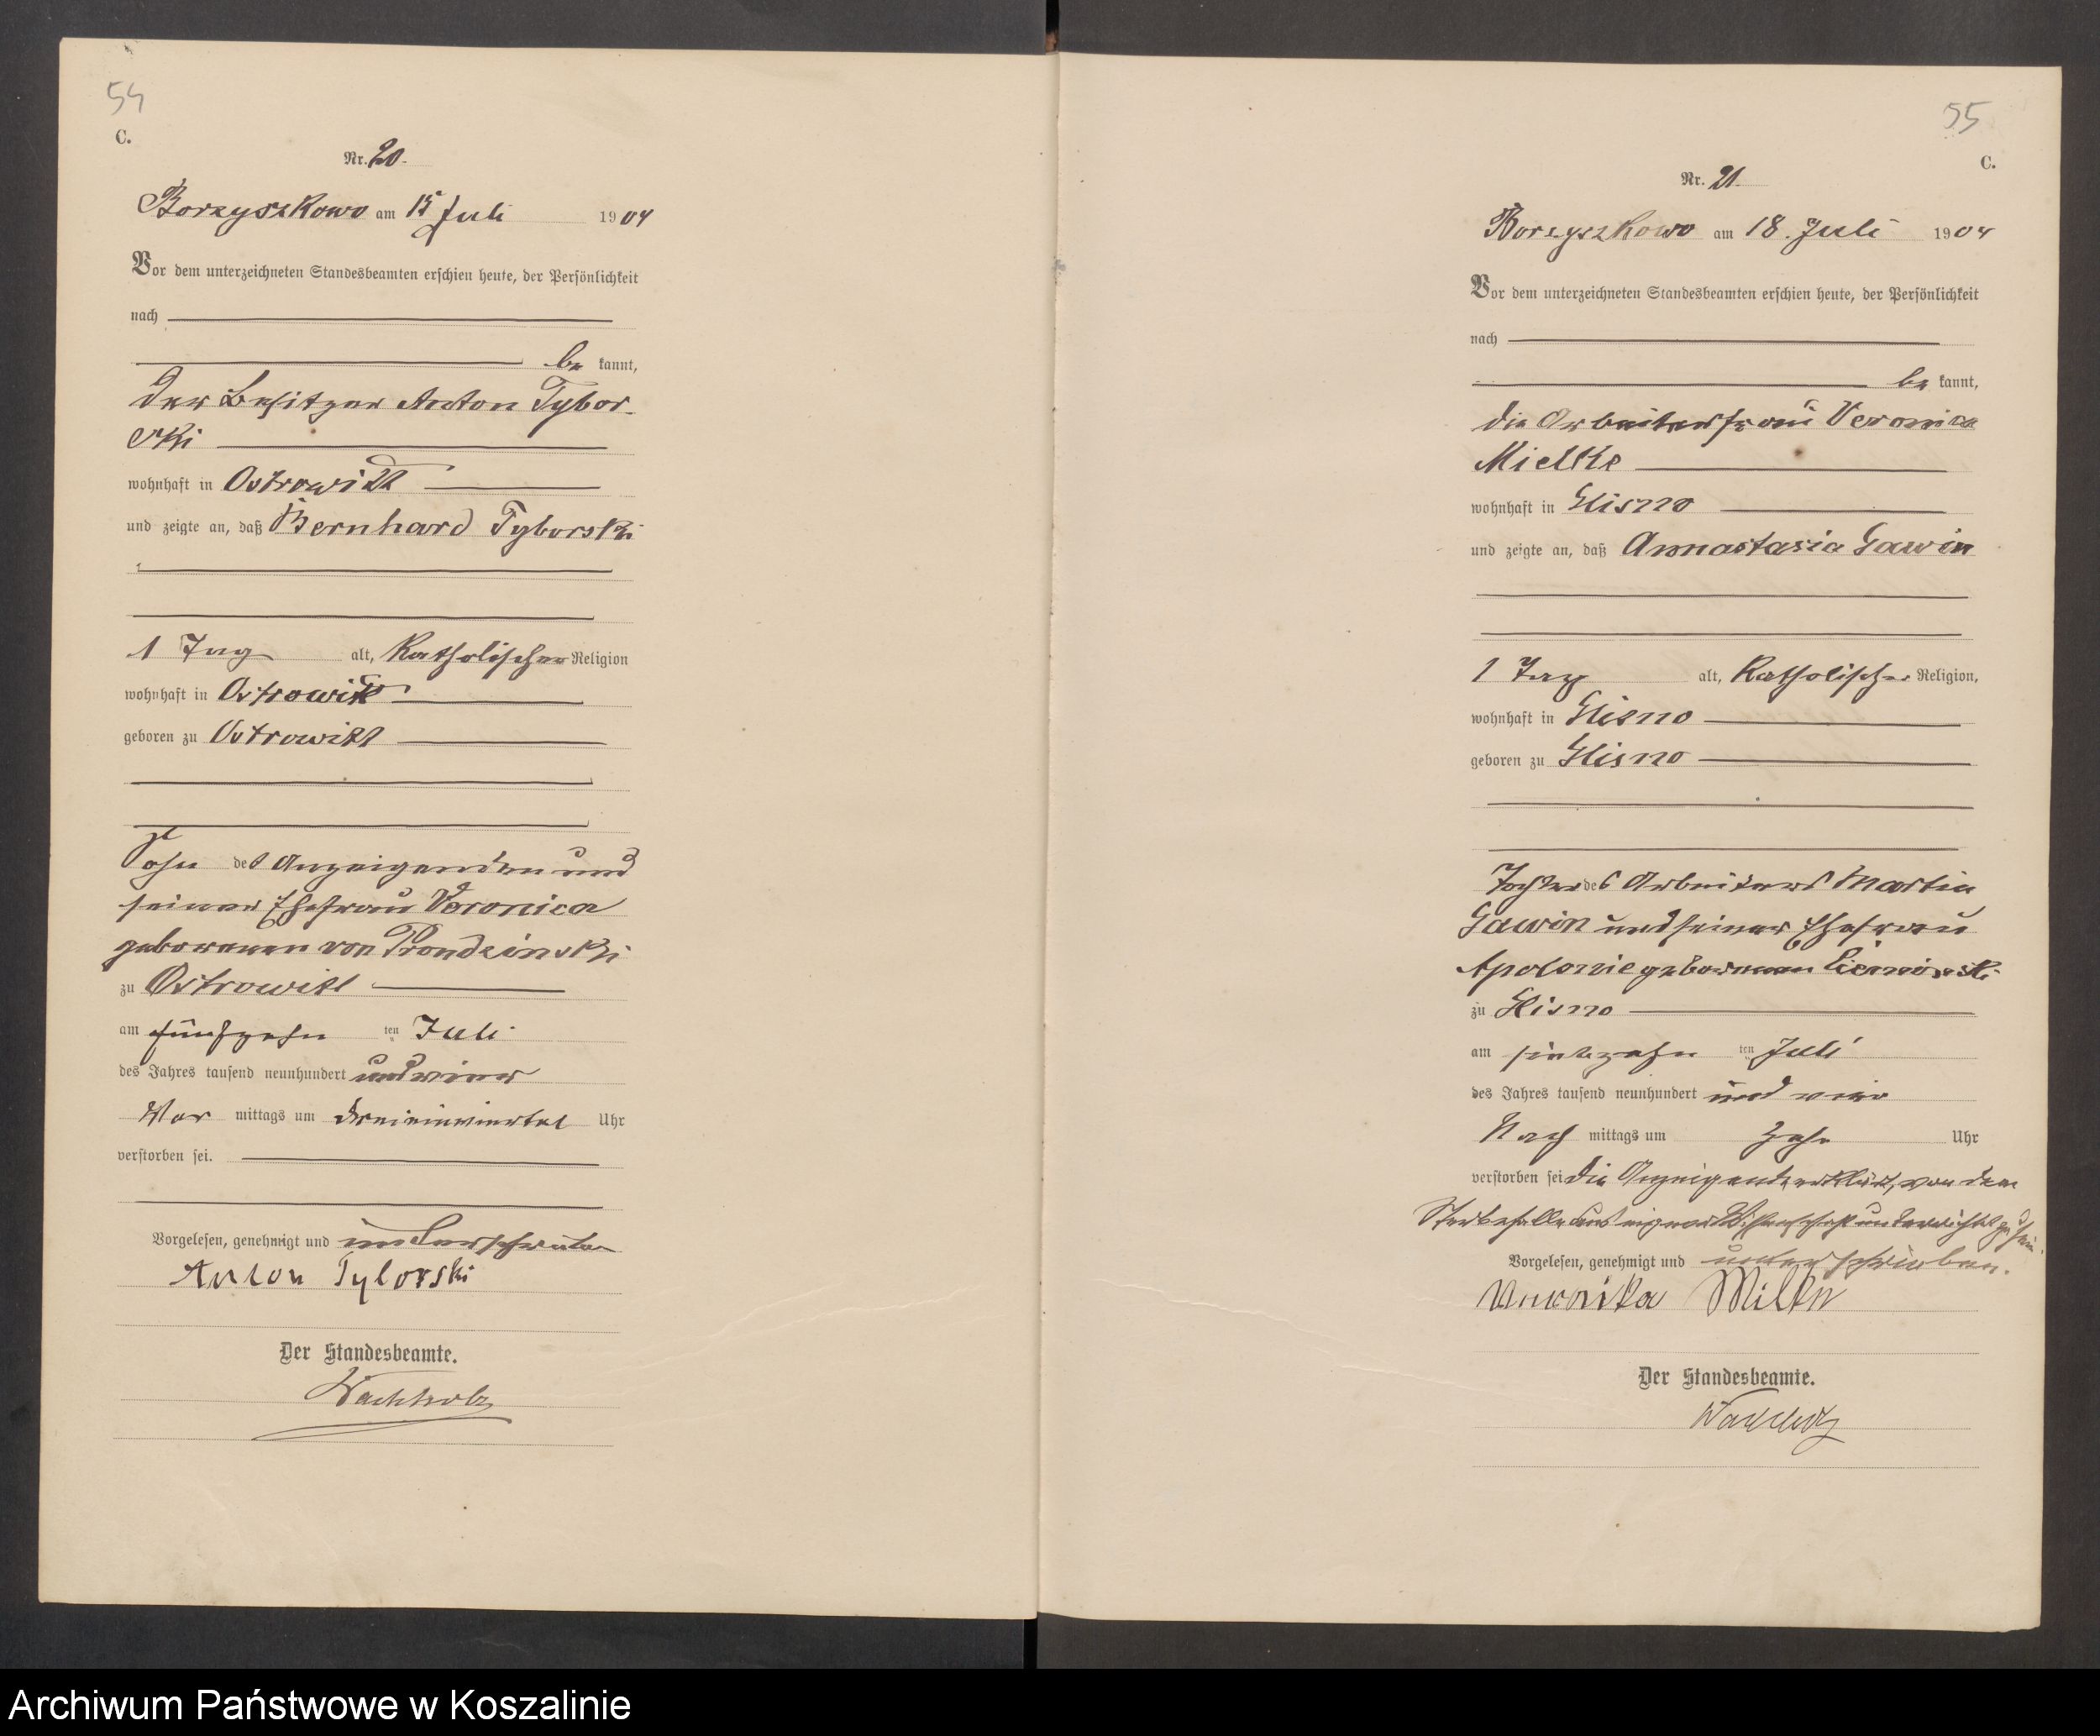 54
C.
Nr. 20.
Borzyszkowo am 15 Juli 1904
Vor dem unterzeichneten Standesbeamten erschien heute, der Persönlichkeit
nach
be kannt,
der Besitzer Anton Tybor-
ski
wohnhaft in Ostrowitt
und zeigte an, daß Bernhard Tyborski
1 Tag alt, Katholischer Religion
wohnhaft in Ostrowitt
geboren zu Ostrowitt
Sohn des Anzeigenden und
seiner Ehefrau Veronica
geborenen von Prondzinski
zu Ostrowitt
am fünfzehn ten Juli
des Jahres tausend neunhundert und vier
Vor mittags um drei einviertel Uhr
verstorben sei.
Vorgelesen, genehmigt und unterschrieben
Anton Tyborski
Der Standesbeamte.
Wachholz
55
C.
Nr. 21.
Borzyszkowo am 18. Juli 1904
Vor dem unterzeichneten Standesbeamten erschien heute, der Persönlichkeit
nach
be kannt,
die Arbeiterfrau Veronica
Mielke
wohnhaft in Glisno
und zeigte an, daß Annastasia Gawin
1 Tag alt, Katholischer Religion,
wohnhaft in Glisno
geboren zu Glisno
Tochter des Arbeiters Martin
Gawin und seiner Ehefrau
Apolonie geborenen
zu Glisno
am siebzehn ten Juli
des Jahres tausend neunhundert und vier
Nach mittags um Zehn Uhr
verstorben sei die Anzeigende erklärt, von dem
Sterbefalle aus eigner Wissenschaft unterrichtet zu sein.
Vorgelesen, genehmigt und unterschrieben.
Weronika Milke
Der Standesbeamte.
Wachholz
Archiwum Państwowe w Koszalinie